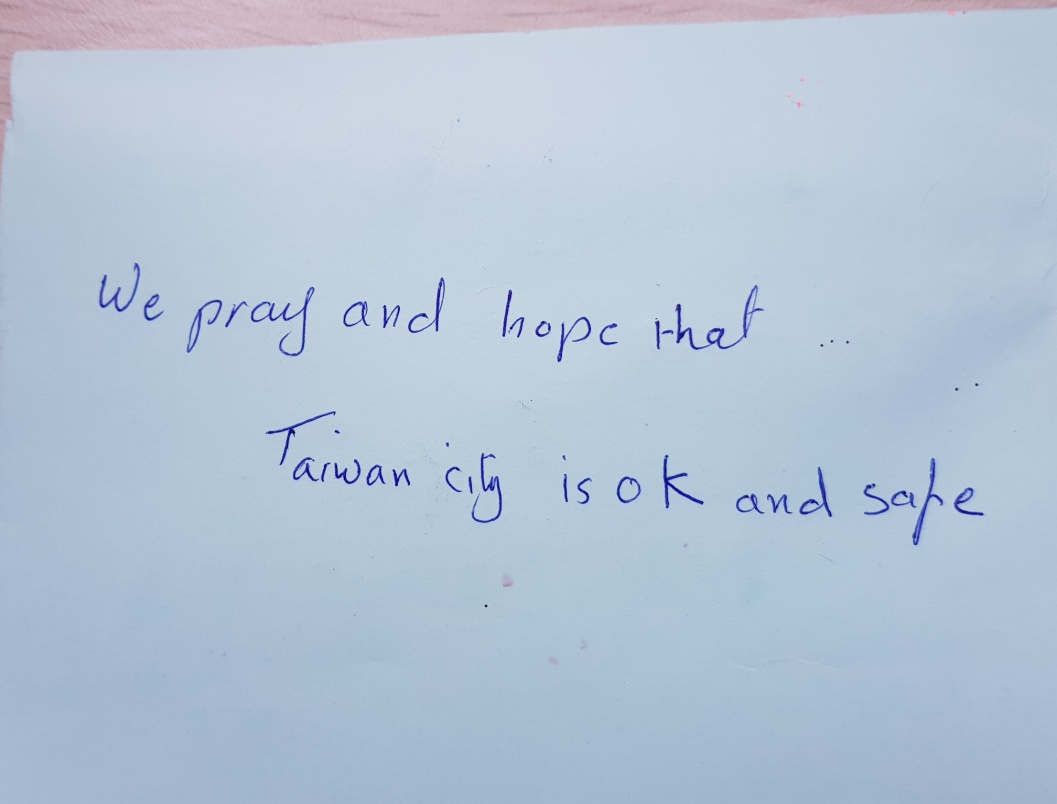 We pray and hope that ...
Taiwan city is ok and safe